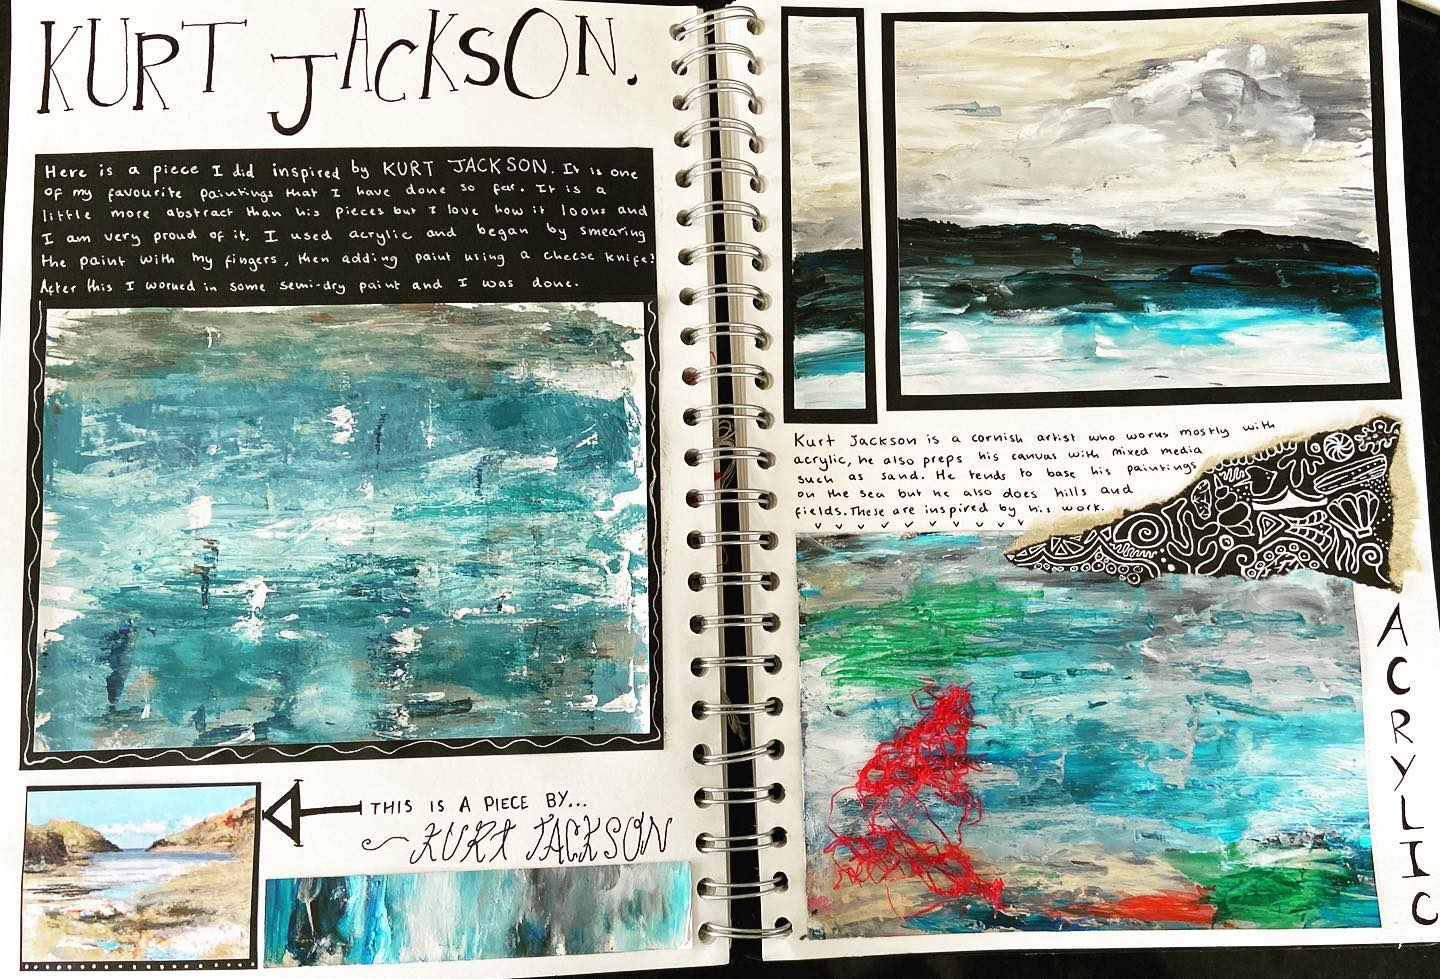 KURT JACKSON.
Here is a piece I did inspired by KURT JACKSON. It is one
of my favourite paintings that I have done so far. It is a
little more abstract than his pieces but I love how it looks and
I am very proud of it. I used acrylic and began by smearing
the paint with my fingers, then adding paint using a cheese knife!
After this I worked in some semi-dry paint and I was done.
THIS IS A PIECE BY...
KURT JACKSON
Kurt Jackson is a cornish artist who works mostly with
acrylic, he also preps his canvas with mixed media
such as sand. He tends to base his paintings
on the sea but he also does hills and
fields. These are inspired by his work.
ACRYLIC